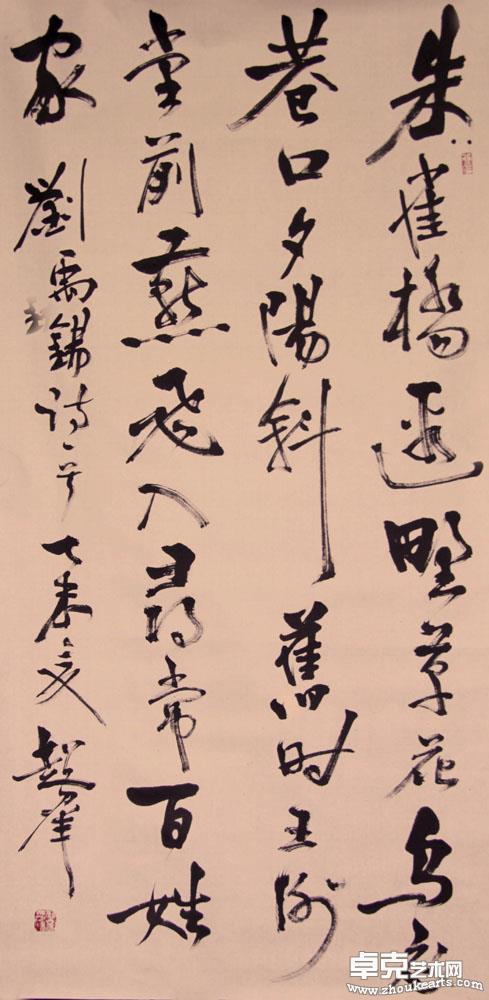 朱雀橋邊野草花烏衣
巷口夕陽斜舊时王谢
堂前燕飛入尋常百姓
家 劉禹錫詩一首 未夏
卓克艺术网
www.zhoukearts.com